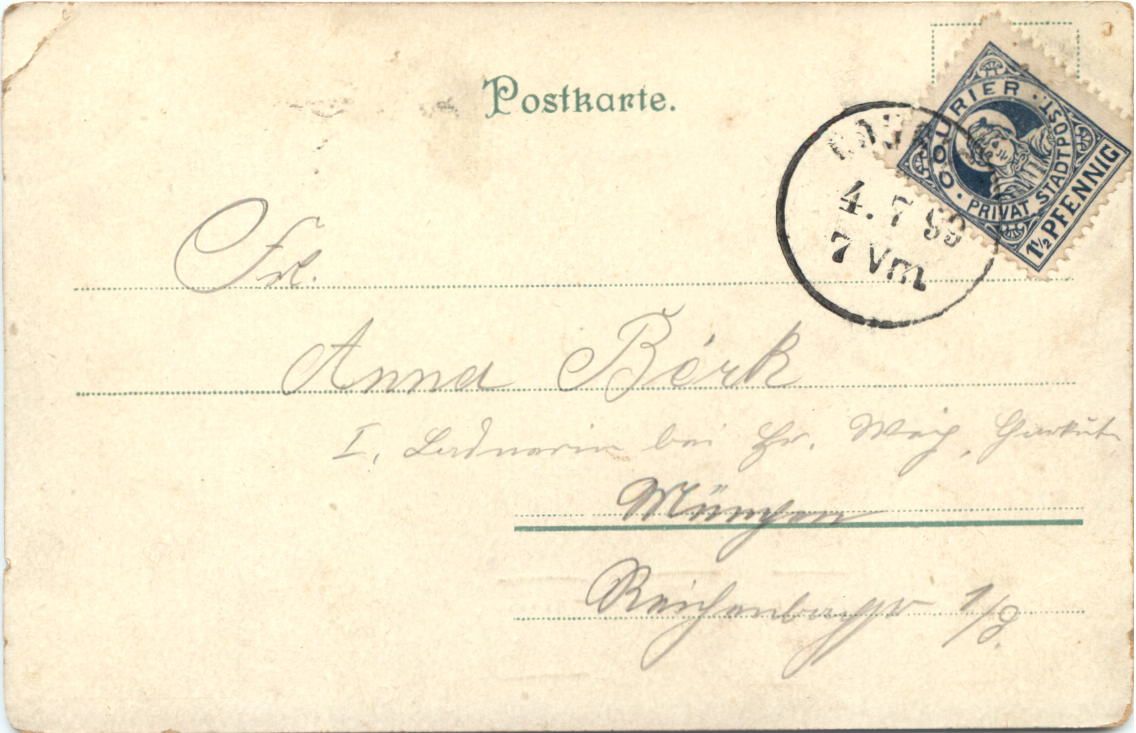 Postkarte.
COURIER
PRIVAT STADTPOST
1½ PFENNIG
4. 7 99
7 Vm.
Frl.
Anna Börk
I. Ladnerin bei Hr.
München
1/2